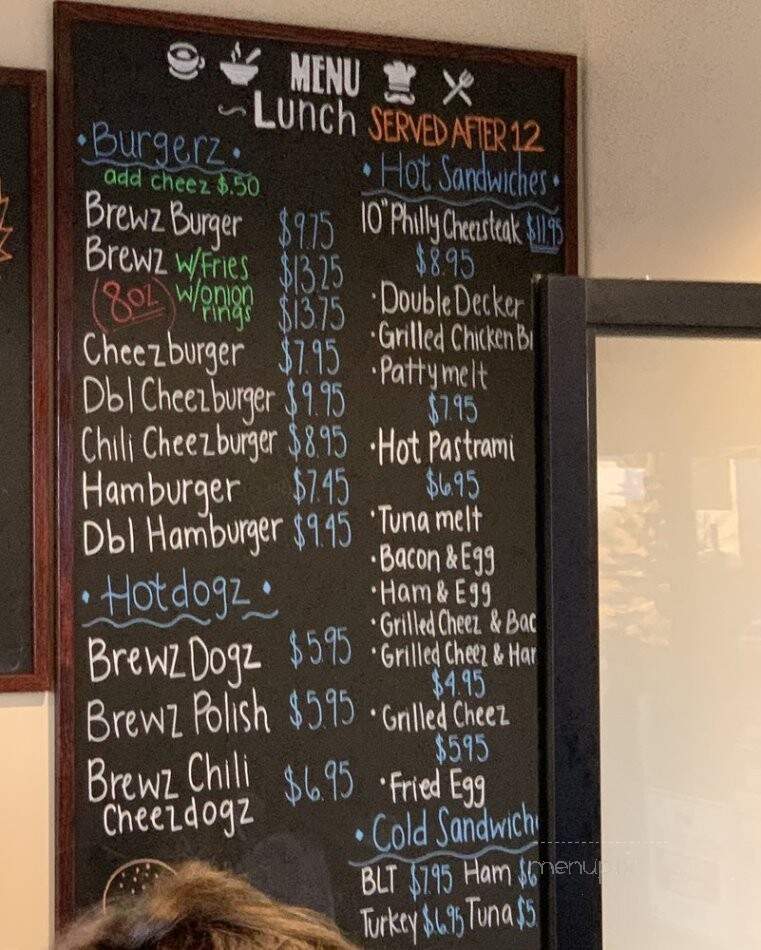 MENU
~Lunch SERVED AFTER 12
• Burgerz •
add cheez $.50
Brewz Burger $9.75
Brewz w/Fries $13.25
8oz w/onion rings $13.75
Cheezburger $7.95
Dbl Cheezburger $9.95
Chili Cheezburger $8.95
Hamburger $7.45
Dbl Hamburger $9.45
• Hotdogz •
Brewz Dogz $5.95
Brewz Polish $5.95
Brewz Chili
Cheezdogz $6.95
• Hot Sandwiches •
10" Philly Cheezsteak $11.95
$8.95
• Double Decker
• Grilled Chicken
• Pattymelt
$7.95
• Hot Pastrami
$6.95
• Tuna melt
• Bacon & Egg
• Ham & Egg
• Grilled Cheez & Bac
• Grilled Cheez & Ha
$4.95
• Grilled Cheez
$5.95
• Fried Egg
• Cold Sandwich
BLT $7.95 Ham $6
Turkey $6.95 Tuna $5